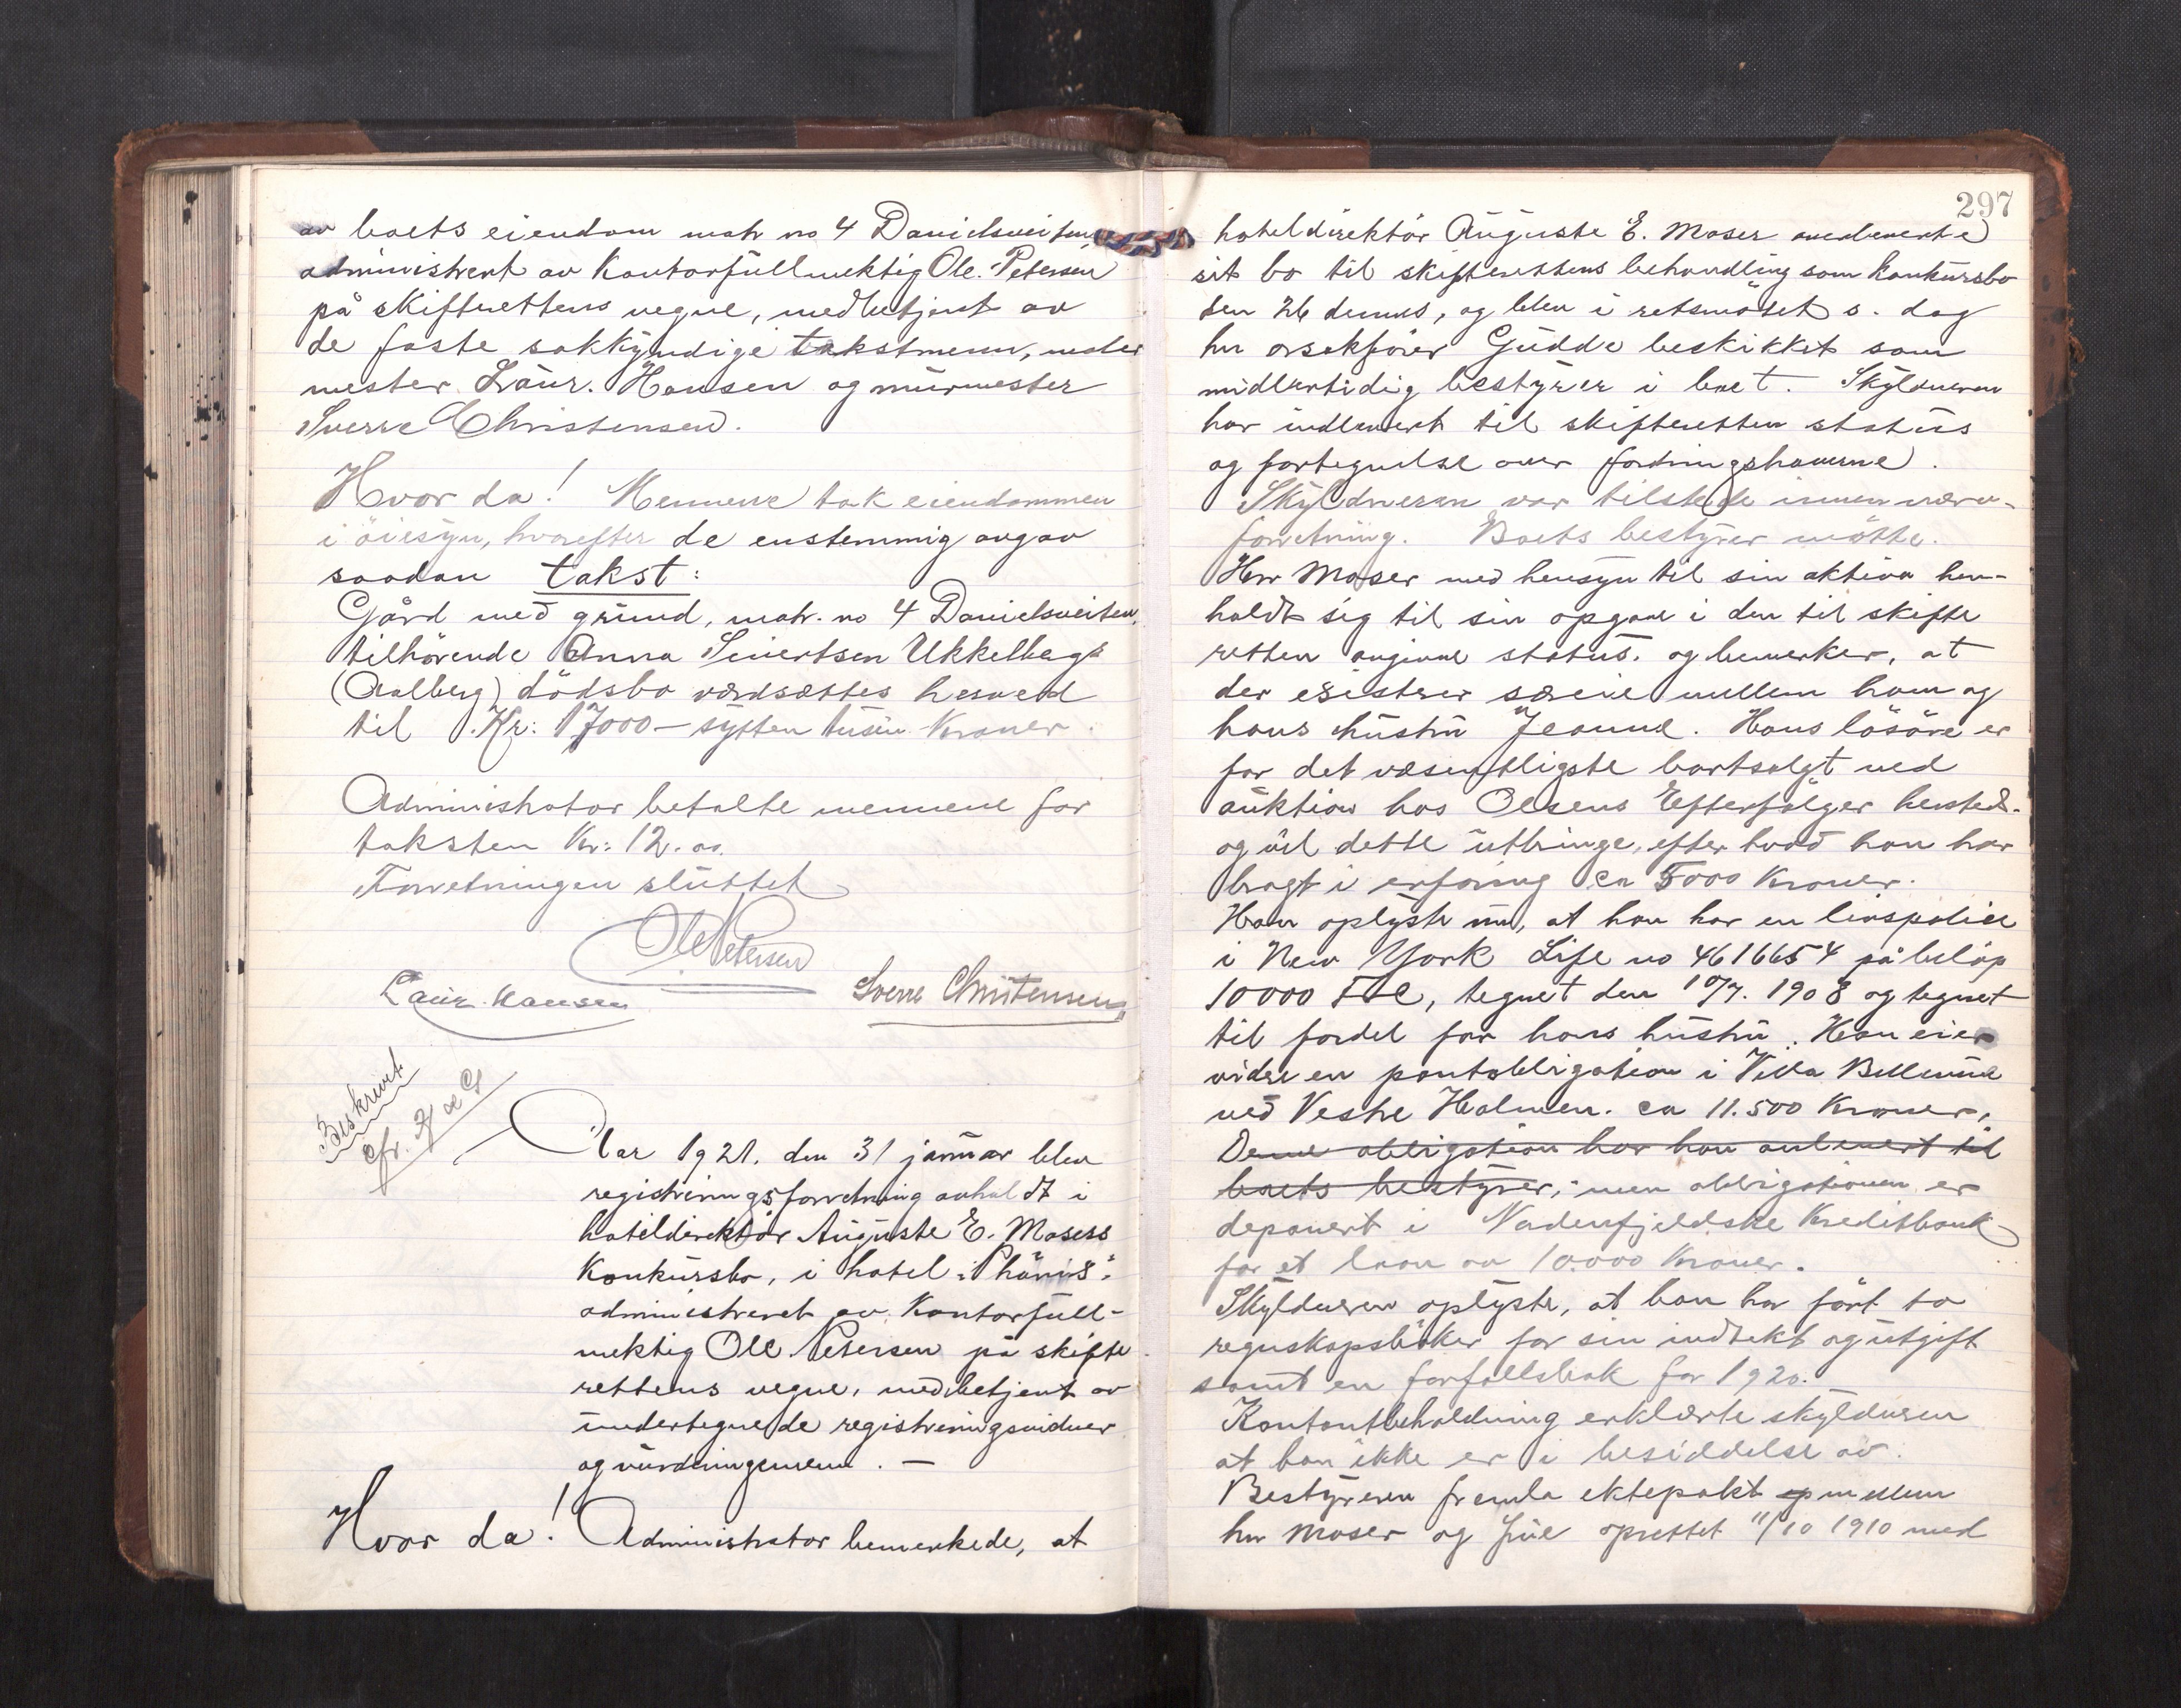 av boets eiendom matr no 4 Danielsveiten
administrert av kontorfullmektig Ole Petersen
på skifterettens vegne, medbetjent av
de faste sakkyndige takstmenn, maler
mester Laur. Hansen og murmester
Sverre Christensen.
Hvor da! Mennene tok eiendommen
i öiesyn, hvorefter de enstemmig avgav
saadan takst:
Gård med grund, matr. no 4 Danielsveiten,
tilhörende Anna Sivertsen Ukkelbergs
(Aalberg) dödsbo værdsættes herved
til Kr: 17000 – sytten tusen kroner.
Administrator betalte mennene for
taksten kr: 12.00
Forretningen sluttet
Ole Petersen
Laur. Hansen Sverre Christensen
Beskrevet
cfr.
Aar 1921. den 31 januar blev
registreringsforretning avholdt i
hoteldirektör Auguste E. Mosers
Konkursbo, i hotel "Phönix"
administreret av kontorfull-
mektig Ole Petersen på skifte
rettens vegne, medbetjent av
undertegnede registreringsvidner
og vurderingsmenn. —
Hvor da! Administrator bemerkede, at
297
hoteldirektör Auguste E. Moser overleverte
sit bo til skifterettens behandling som konkursbo
den 26 dennes, og blev i retsmötet s. dag
hr orsakförer Gudde beskikket som
midlertidig bestyrer i boet. Skyldneren
har indlevert til skifteretten status
og fortegnelse over fordringshaverne.
Skyldneren var tilstede innen nærv.
forretning. Boets bestyrer mötte.
Herr Moser med hensyn til sin aktiva hen-
holdt sig til sin opgave i den til skifte
retten avgivne status. og bemerker, at
der existerer særeie mellem ham og
hans hustru Jeanne. Hans lösöre er
for det væsentligste bortsolgt ved
auktion hos Olsens Efterfölger hersted.
og vil dette utbringe, efter hvad han har
bragt i erfaring ca 5000 Kroner.
Han oplyste nu, at han har en livspolice
i New York Life no 4616654 på belöp
10000, tegnet den 10/7. 1908 og tegnet
til fordel for hans hustru. Han eier
videre en pantobligation i Villa Bellevue
ved Vestre Holmen. ca 11.500 Kroner,
Denne obligation har han avlevert til
boets bestyrer, men obligationen er
deponert i Nordenfjeldske Kreditbank
for et laan av 10.000 Kroner.
Skyldneren oplyste, at han har fört to
regnskapsböker for sin indtekt og utgift
samt en forfallsbok for 1920.
Kontantbeholdning erklærte skyldneren
at han ikke er i besiddelse av.
Bestyreren fremla ektepakt mellem
hr Moser og frue oprettet 11/10 1910 med